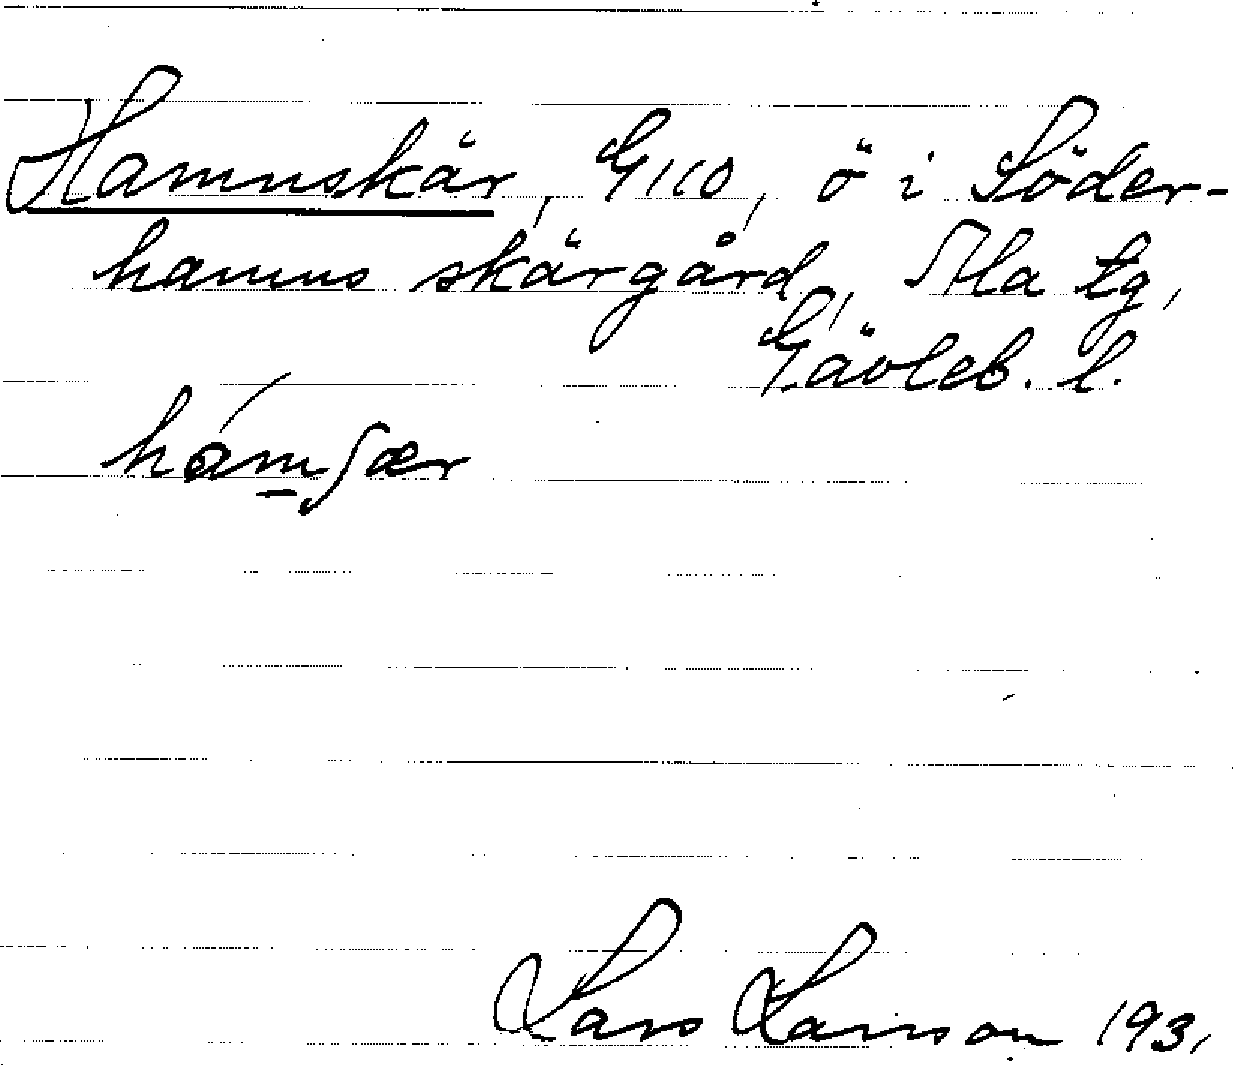 Hamnskär, GKO, ö i Söder-
hamns skärgård, Ala tg,
Gävleb. l.
hámʃær
Lars Larsson 1931